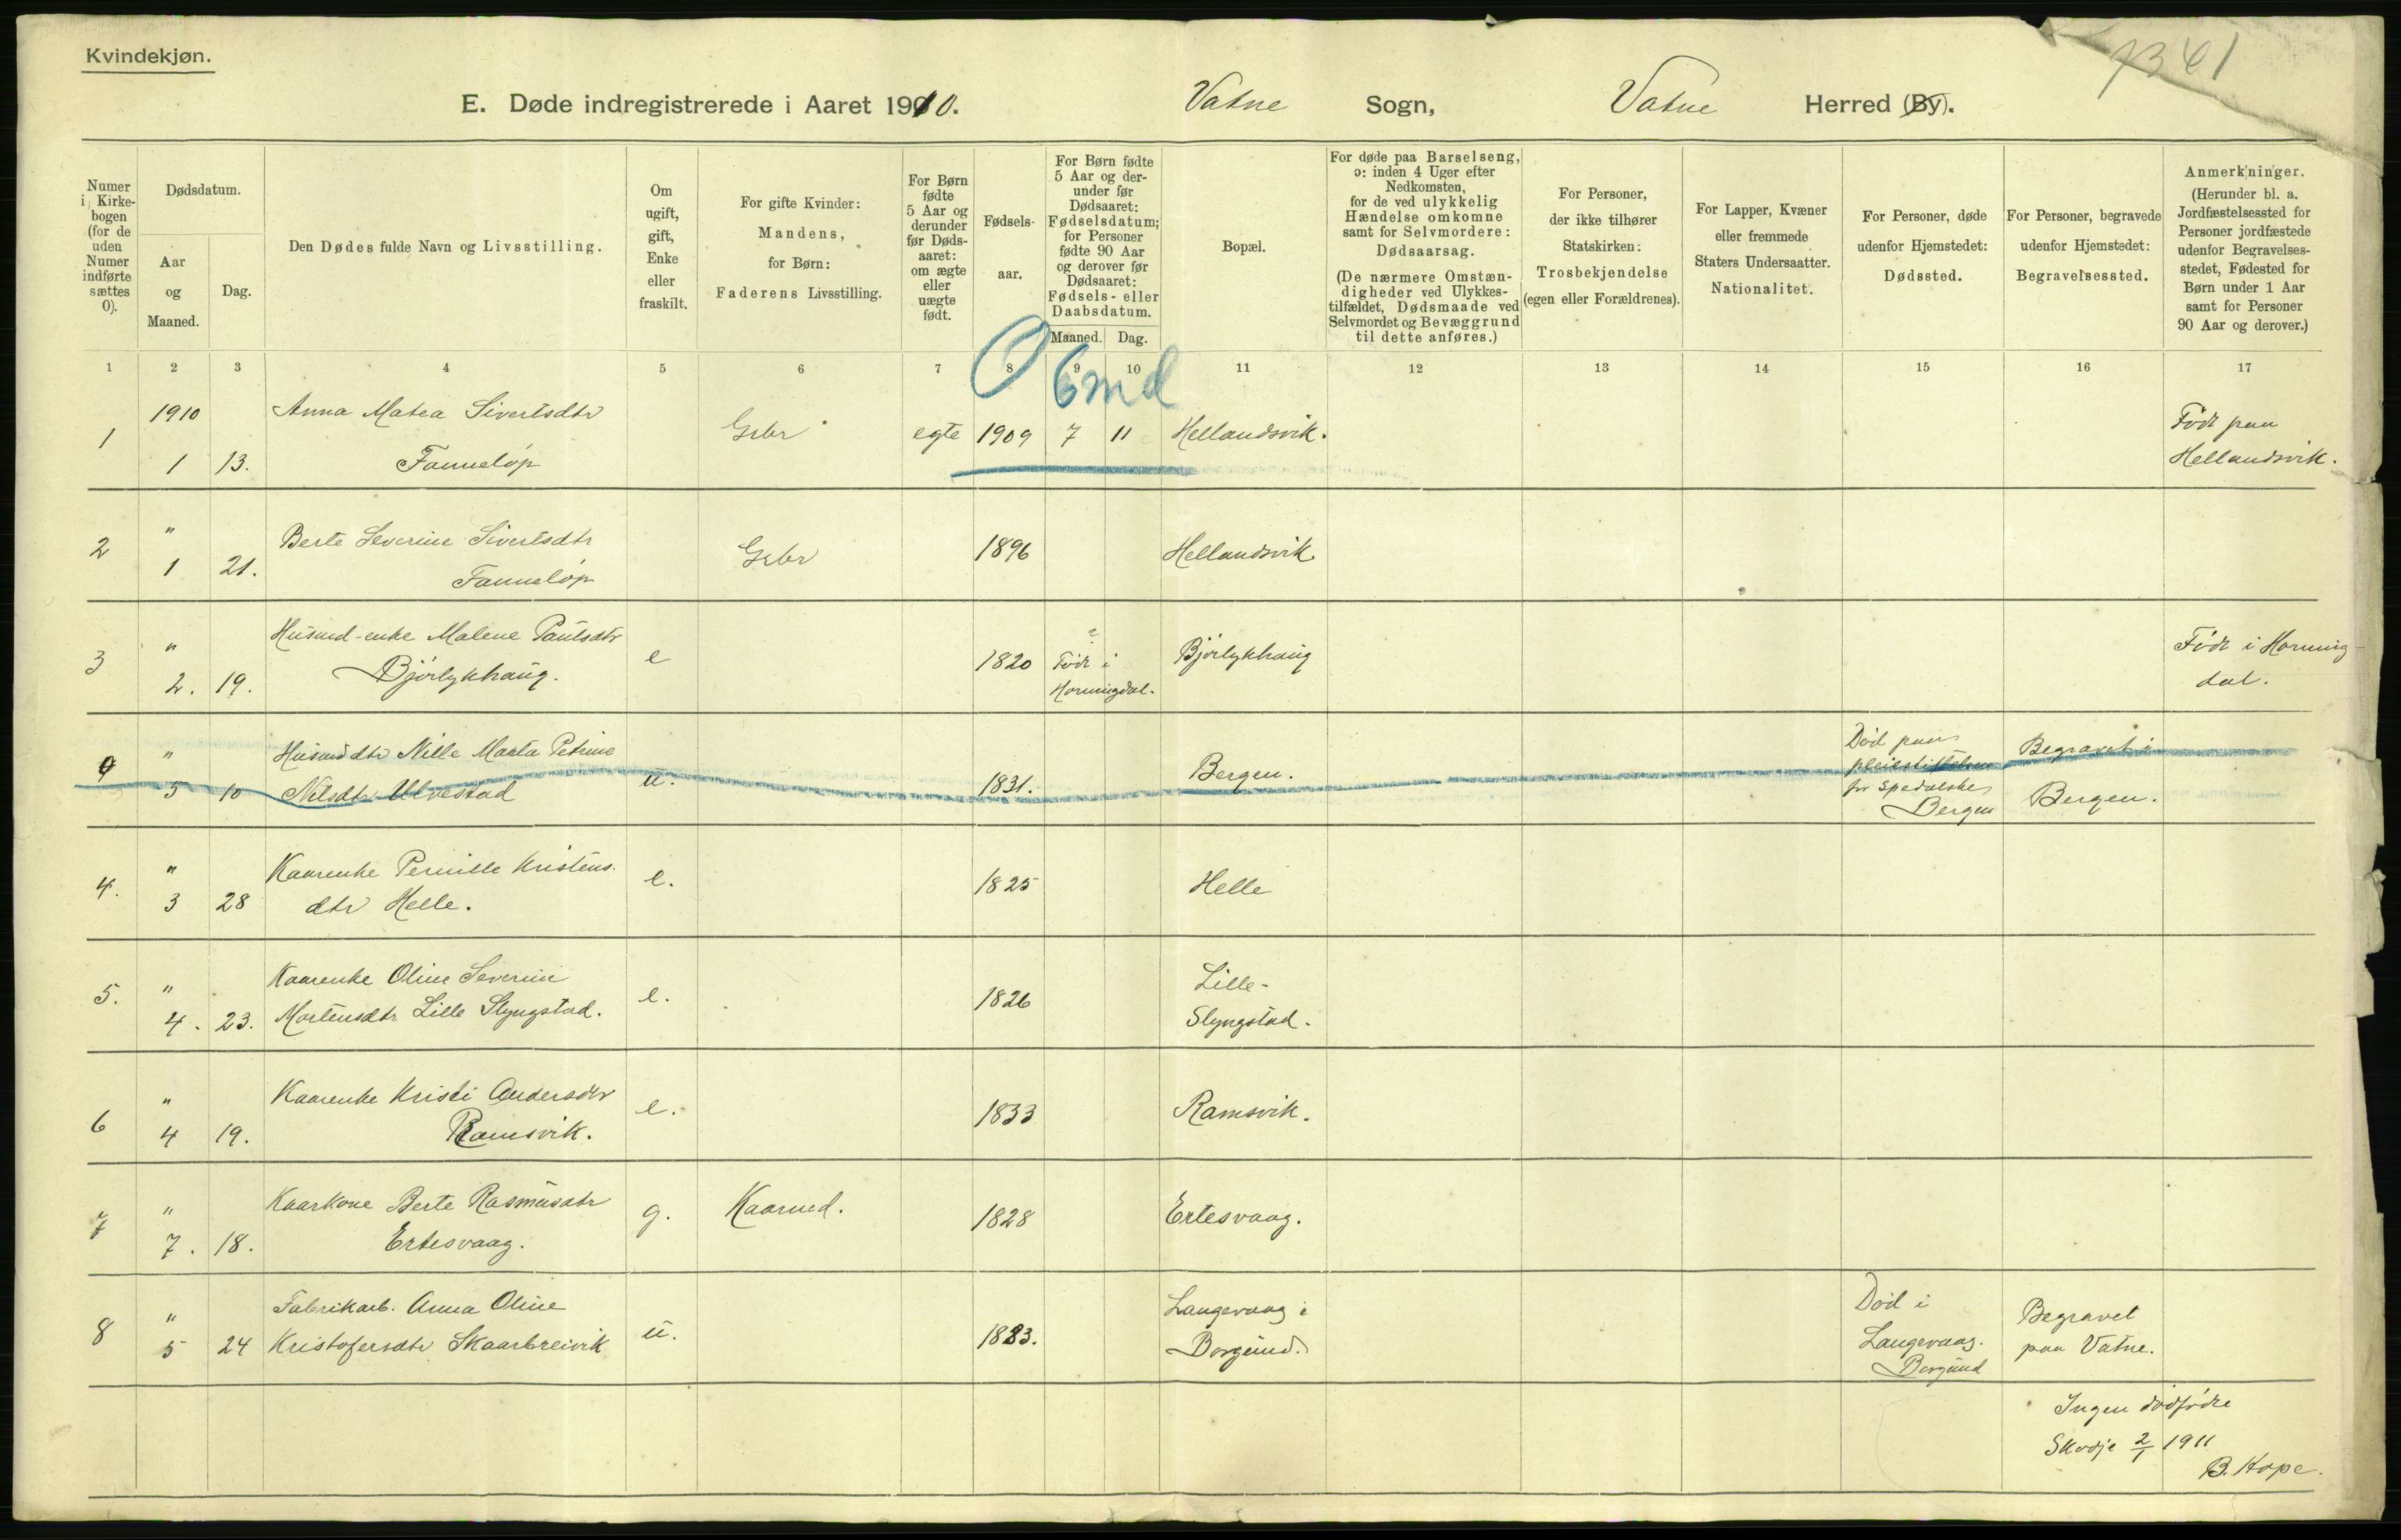 Kvindekjøn.
1341
E. Døde indregistrerede i Aaret 1910. Vatne Sogn, Vatne Herred (By).
Numer i Kirkebogen (for de uden Numer indførte sættes 0).
Dødsdatum.
Aar og Maaned.
Dag.
Den Dødes fulde Navn og Livsstilling.
Om ugift, gift, Enke eller fraskilt.
For gifte Kvinder: Mandens, for Børn: Faderens Livsstilling.
For Børn fødte 5 Aar og derunder før Dødsaaret: om ægte eller uægte født.
Fødselsaar.
For Børn fødte 5 Aar og derunder før Dødsaaret: Fødselsdatum; for Personer fødte 90 Aar og derover før Dødsaaret: Fødsels- eller Daabsdatum.
Maaned. Dag.
Bopæl.
For døde paa Barselseng, ɔ: inden 4 Uger efter Nedkomsten, for de ved ulykkelig Hændelse omkomne samt for Selvmordere: Dødsaarsag.
(De nærmere Omstændigheder ved Ulykkestilfældet, Dødsmaade ved Selvmordet og Bevæggrund til dette anføres.)
For Personer, der ikke tilhører Statskirken: Trosbekjendelse (egen eller Forældrenes).
For Lapper, Kvæner eller fremmede Staters Undersaatter. Nationalitet.
For Personer, døde udenfor Hjemstedet: Dødssted.
For Personer, begravede udenfor Hjemstedet: Begravelsessted.
Anmerkninger.
(Herunder bl. a. Jordfæstelsessted for Personer jordfæstede udenfor Begravelsesstedet, Fødested for Børn under 1 Aar samt for Personer 90 Aar og derover.)
1 2 3 4 5 6 7 8 9 10 11 12 13 14 15 16 17
0 6 md
1 1910 1 13. Anna Matea Sivertsdtr Fanneløp Gbr egte 1909 7 11 Hellandsvik. Født paa Hellandsvik.
2 " 1 21. Berte Severine Sivertsdtr Fanneløp Gbr 1896 Hellandsvik
3 " 2. 19. Husmd-enke Malene Paulsdtr Bjørlykhaug. e 1820 ? Født i Horningdal. Bjørlykhaug Født i Horningdal.
0 " 5 10 Husmdtr Nille Marta Petrine Nilsdtr Ulvestad u. 1831. Bergen. Død paa pleiestiftelsen for Spedalske Bergen Begravet i Bergen.
4. " 3 28 Kaarenke Pernille Kristensdtr Helle. e. 1825 Helle
5. " 4. 23. Kaarenke Oline Severine Mortensdtr Lille Slyngstad. e. 1826 Lille-Slyngstad.
6 " 4 19. Kaarenke Kristi Andersdtr Ramsvik. e. 1833 Ramsvik.
7 " 7. 18. Kaarkone Berte Rasmusdtr Ertesvaag. g. Kaarmd. 1828 Ertesvaag.
8 " 5 24 Fabrikarb. Anna Oline Kristofersdtr Skaarbreivik u. 1883. Langevaag i Borgund. Død i Langevaag. Borgund Begravet paa Vatne.
Ingen dødfødte
Skodje 2/1 1911
B. Hope.